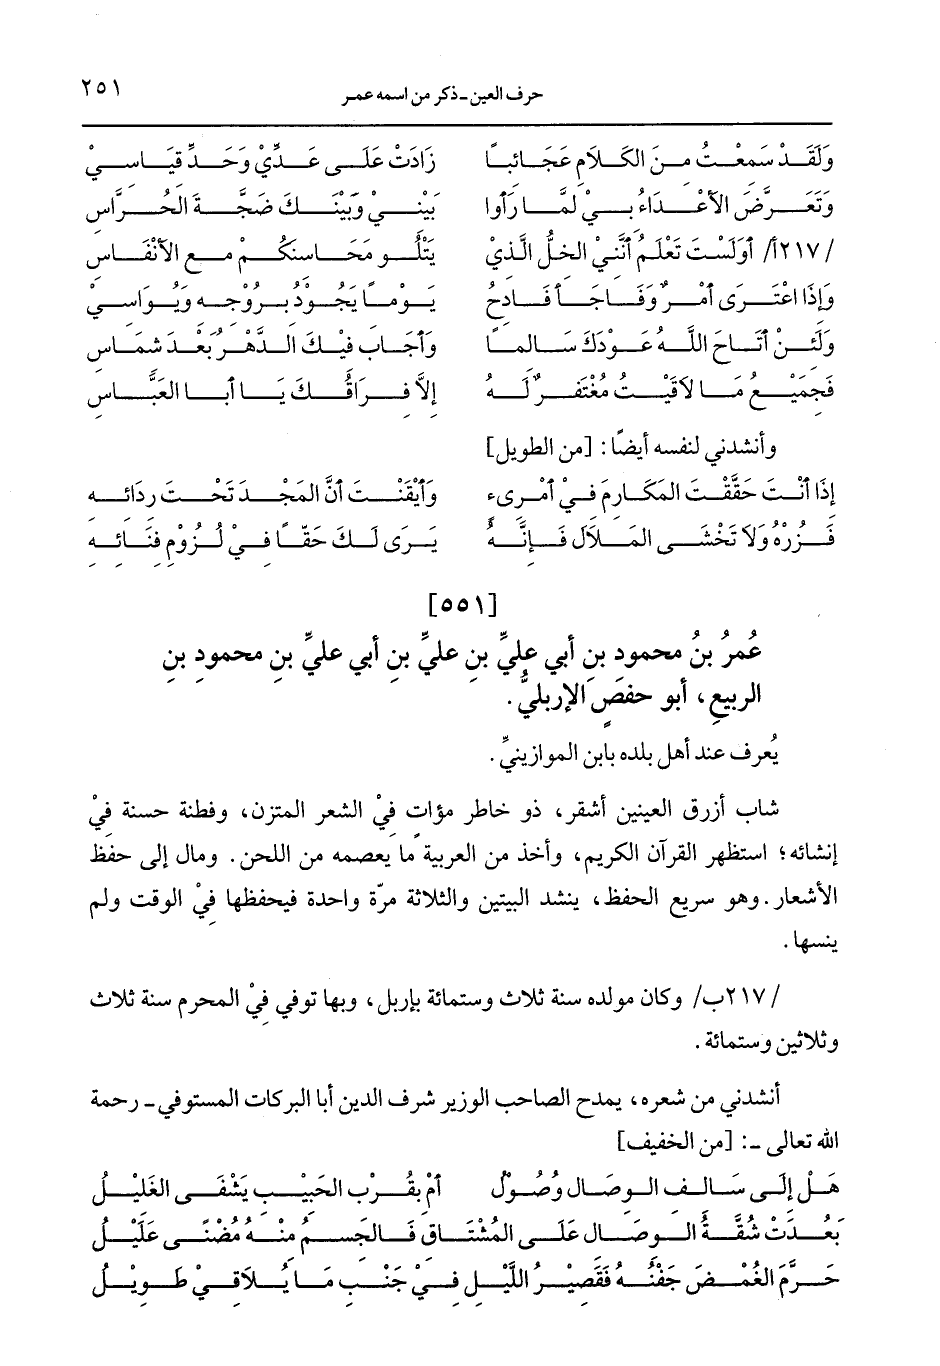 حرف العين ـ ذكر من اسمه عمر ٢٥١
وَلَقَدْ سَمِعْتُ مِنَ الكَلَامِ عَجَائِبًا زَادَتْ عَلَى عَدِّيْ وَحَدِّ قِيَاسِيْ
وَتَعَرَّضَ الأَعْدَاءُ بِيْ لَمَّا رَأَوا بَيْنِيْ وَبَيْنَكَ ضَجَّةَ الحُرَّاسِ
/٢١٧أ/ أَوَلَسْتَ تَعْلَمُ أَنَّنِيْ الخِلُّ الَّذِيْ يَتْلُو مَحَاسِنَكُمْ مَعِ الأَنْفَاسِ
وَإِذَا اعْتَرَى أَمْرٌ وَفَاجَأَ فَادِحُ يَوْمًا يَجُوْدُ بِرُوْحِهِ وَيُوَاسِيْ
وَلَئِنْ أَتَاحَ اللَّهُ عَوْدَكَ سَالِمًا وَأَجَابَ فِيْكَ الدَّهْرُ بَعْدَ شِمَاسِ
فَجَمِيْعُ مَا لَاقَيْتُ مُغْتَفَرٌ لَهُ إِلاَّ فِرَاقُكَ يَا أَبَا العَبَّاسِ
وأنشدني لنفسه أيضًا: [من الطويل]
إِذَا أَنْتَ حَقَّقْتَ المَكَارِمَ فِيْ امْرِىءٍ وَأَيْقَنْتَ أَنَّ المَجْدَ تَحْتَ رِدَائِهِ
فَزُرْهُ وَلَا تَخْشَى المَلَالَ فَإِنَّهُ يَرَى لَكَ حَقًّا فِيْ لُزُوْمِ فِنَائِهِ
[٥٥١]
عُمَرُ بنُ محمودِ بنِ أبي عليِّ بنِ عليِّ بنِ أبي عليِّ بنِ محمودِ بنِ
الربيعِ، أبو حفصٍ الإربليُّ.
يُعرف عند أهل بلده بابن الموازينيِّ.
شاب أزرق العينين أشقر، ذو خاطر مؤات فِيْ الشعر المتزن، وفطنة حسنة فِيْ
إنشائه؛ استظهر القرآن الكريم، وأخذ من العربية ما يعصمه من اللحن. ومال إلى حفظ
الأشعار. وهو سريع الحفظ، ينشد البيتين والثلاثة مرّة واحدة فيحفظها فِيْ الوقت ولم
ينسها.
/٢١٧ب/ وكان مولده سنة ثلاث وستمائة بإربل، وبها توفي فِيْ المحرم سنة ثلاث
وثلاثين وستمائة.
أنشدني من شعره، يمدح الصاحب الوزير شرف الدين أبا البركات المستوفي ـ رحمة
الله تعالى ـ: [من الخفيف]
هَلْ إِلَى سَالِفِ الوِصَالِ وُصُوْلُ أَمْ بِقُرْبِ الحَبِيْبِ يَشْفَى الغَلِيْلُ
بَعُدَتْ شُقَّةُ الوِصَالِ عَلَى المُشْتَاقِ فَالجِسْمُ مِنْهُ مُضْنًى عَلِيْلُ
حَرَّمَ الغُمْضَ جَفْنُهُ فَقَصِيْرُ اللَّيْلِ فِيْ جَنْبِ مَا يُلَاقِيْ طَوِيْلُ